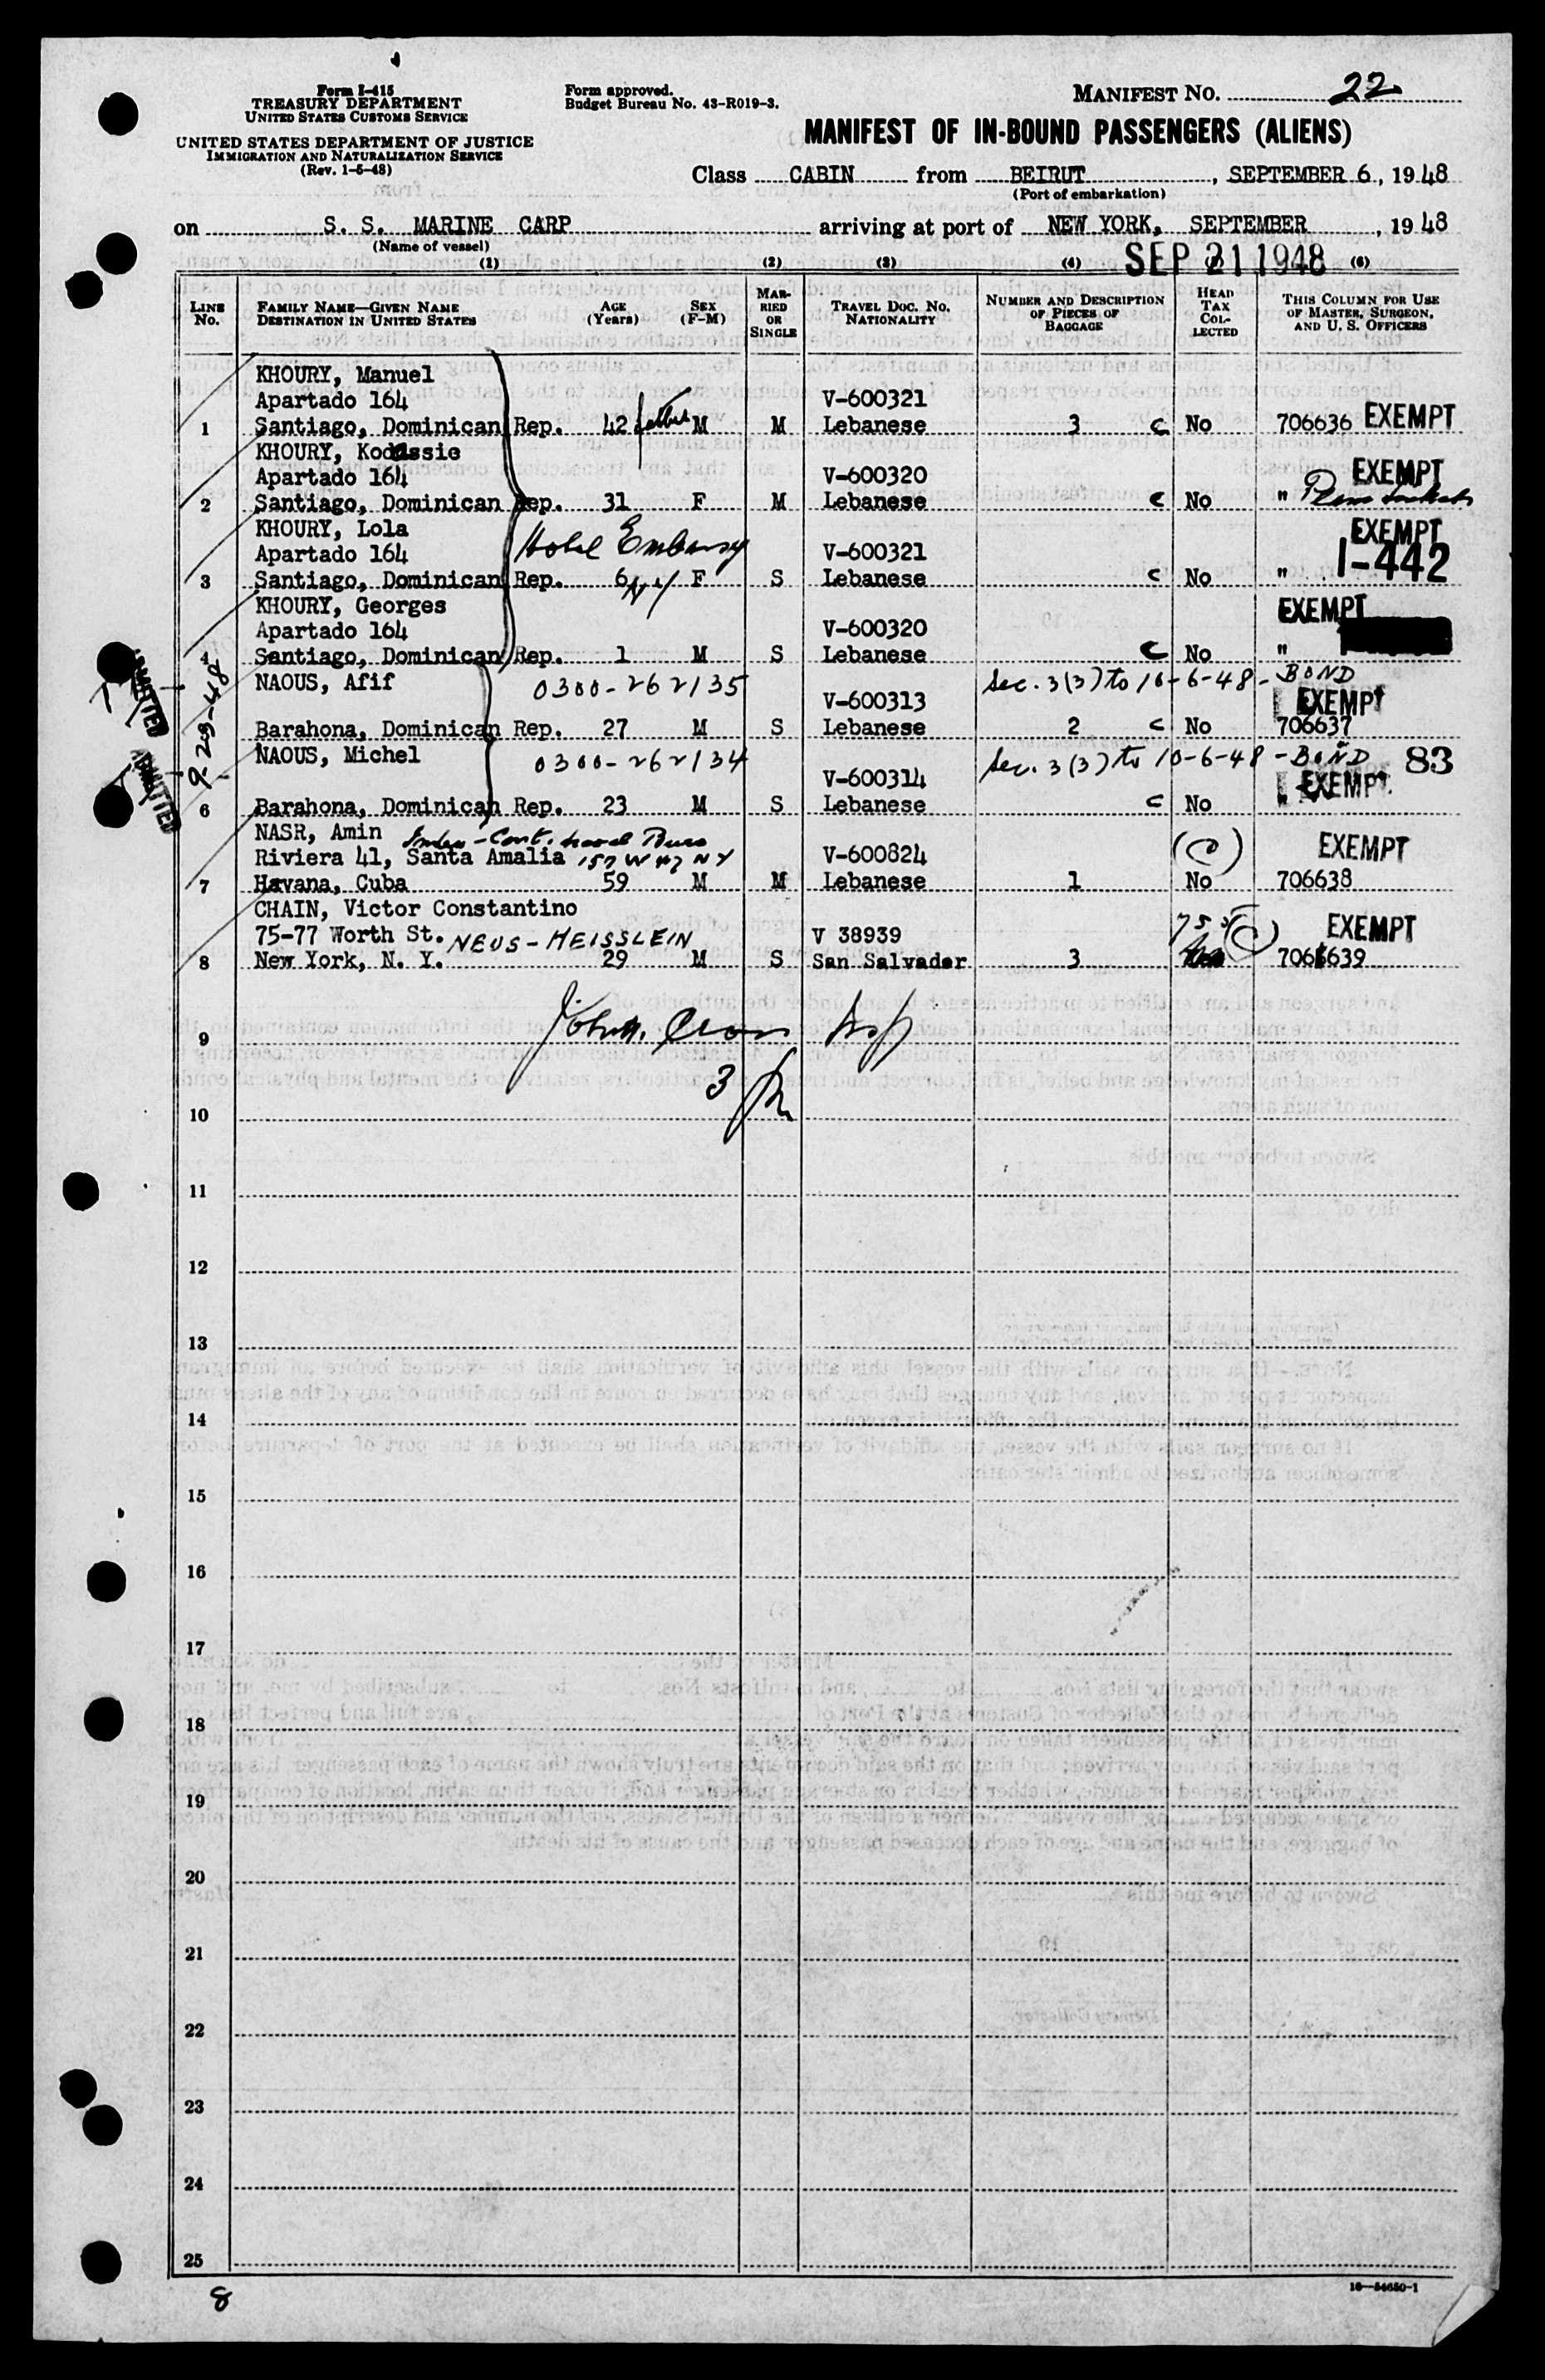 Form I-415
TREASURY DEPARTMENT
UNITED STATES CUSTOMS SERVICE
UNITED STATES DEPARTMENT OF JUSTICE
IMMIGRATION AND NATURALIZATION SERVICE
(Rev. 1-5-48)
Form approved.
Budget Bureau No. 43-R019-3.
MANIFEST NO. 22
MANIFEST OF IN-BOUND PASSENGERS (ALIENS)
Class CABIN from BEIRUT, SEPTEMBER 6, 1948
(Port of embarkation)
on S. S. MARINE CARP arriving at port of NEW YORK, SEPTEMBER, 1948
(Name of vessel)
SEP 21 1948
(1) (2) (3) (4) (6)
LINE No.
FAMILY NAME—GIVEN NAME
DESTINATION IN UNITED STATES
AGE (Years)
SEX (F-M)
MARRIED OR SINGLE
TRAVEL DOC. NO.
NATIONALITY
NUMBER AND DESCRIPTION OF PIECES OF BAGGAGE
HEAD TAX COLLECTED
THIS COLUMN FOR USE OF MASTER, SURGEON, AND U. S. OFFICERS
KHOURY, Manuel
Apartado 164 V-600321
1 Santiago, Dominican Rep. 42 M M Lebanese 3 C No 706636 EXEMPT
KHOURY, Kodassie
Apartado 164 V-600320 EXEMPT
2 Santiago, Dominican Rep. 31 F M Lebanese C No "
KHOURY, Lola Hotel Embassy EXEMPT
Apartado 164 V-600321 I-442
3 Santiago, Dominican Rep. 6 NY F S Lebanese C No "
KHOURY, Georges EXEMPT
Apartado 164 V-600320
4 Santiago, Dominican Rep. 1 M S Lebanese C No "
NAOUS, Afif 0300-262135 Sec. 3(3) to 10-6-48 - BOND
V-600313 EXEMPT
Barahona, Dominican Rep. 27 M S Lebanese 2 C No 706637
ADMITTED
9-23-48
NAOUS, Michel 0300-262134 Sec. 3(3) to 10-6-48 - BOND 83
V-600314 EXEMPT
6 Barahona, Dominican Rep. 23 M S Lebanese C No "
ADMITTED
NASR, Amin
Riviera 41, Santa Amalia 157 W 47 NY V-600824 (C) EXEMPT
7 Havana, Cuba 59 M M Lebanese 1 No 706638
CHAIN, Victor Constantino
75-77 Worth St. NEUS-HEISSLEIN V 38939 (C) EXEMPT
8 New York, N. Y. 29 M S San Salvador 3 706639
9
3
10
11
12
13
14
15
16
17
18
19
20
21
22
23
24
25
8
16—54650-1